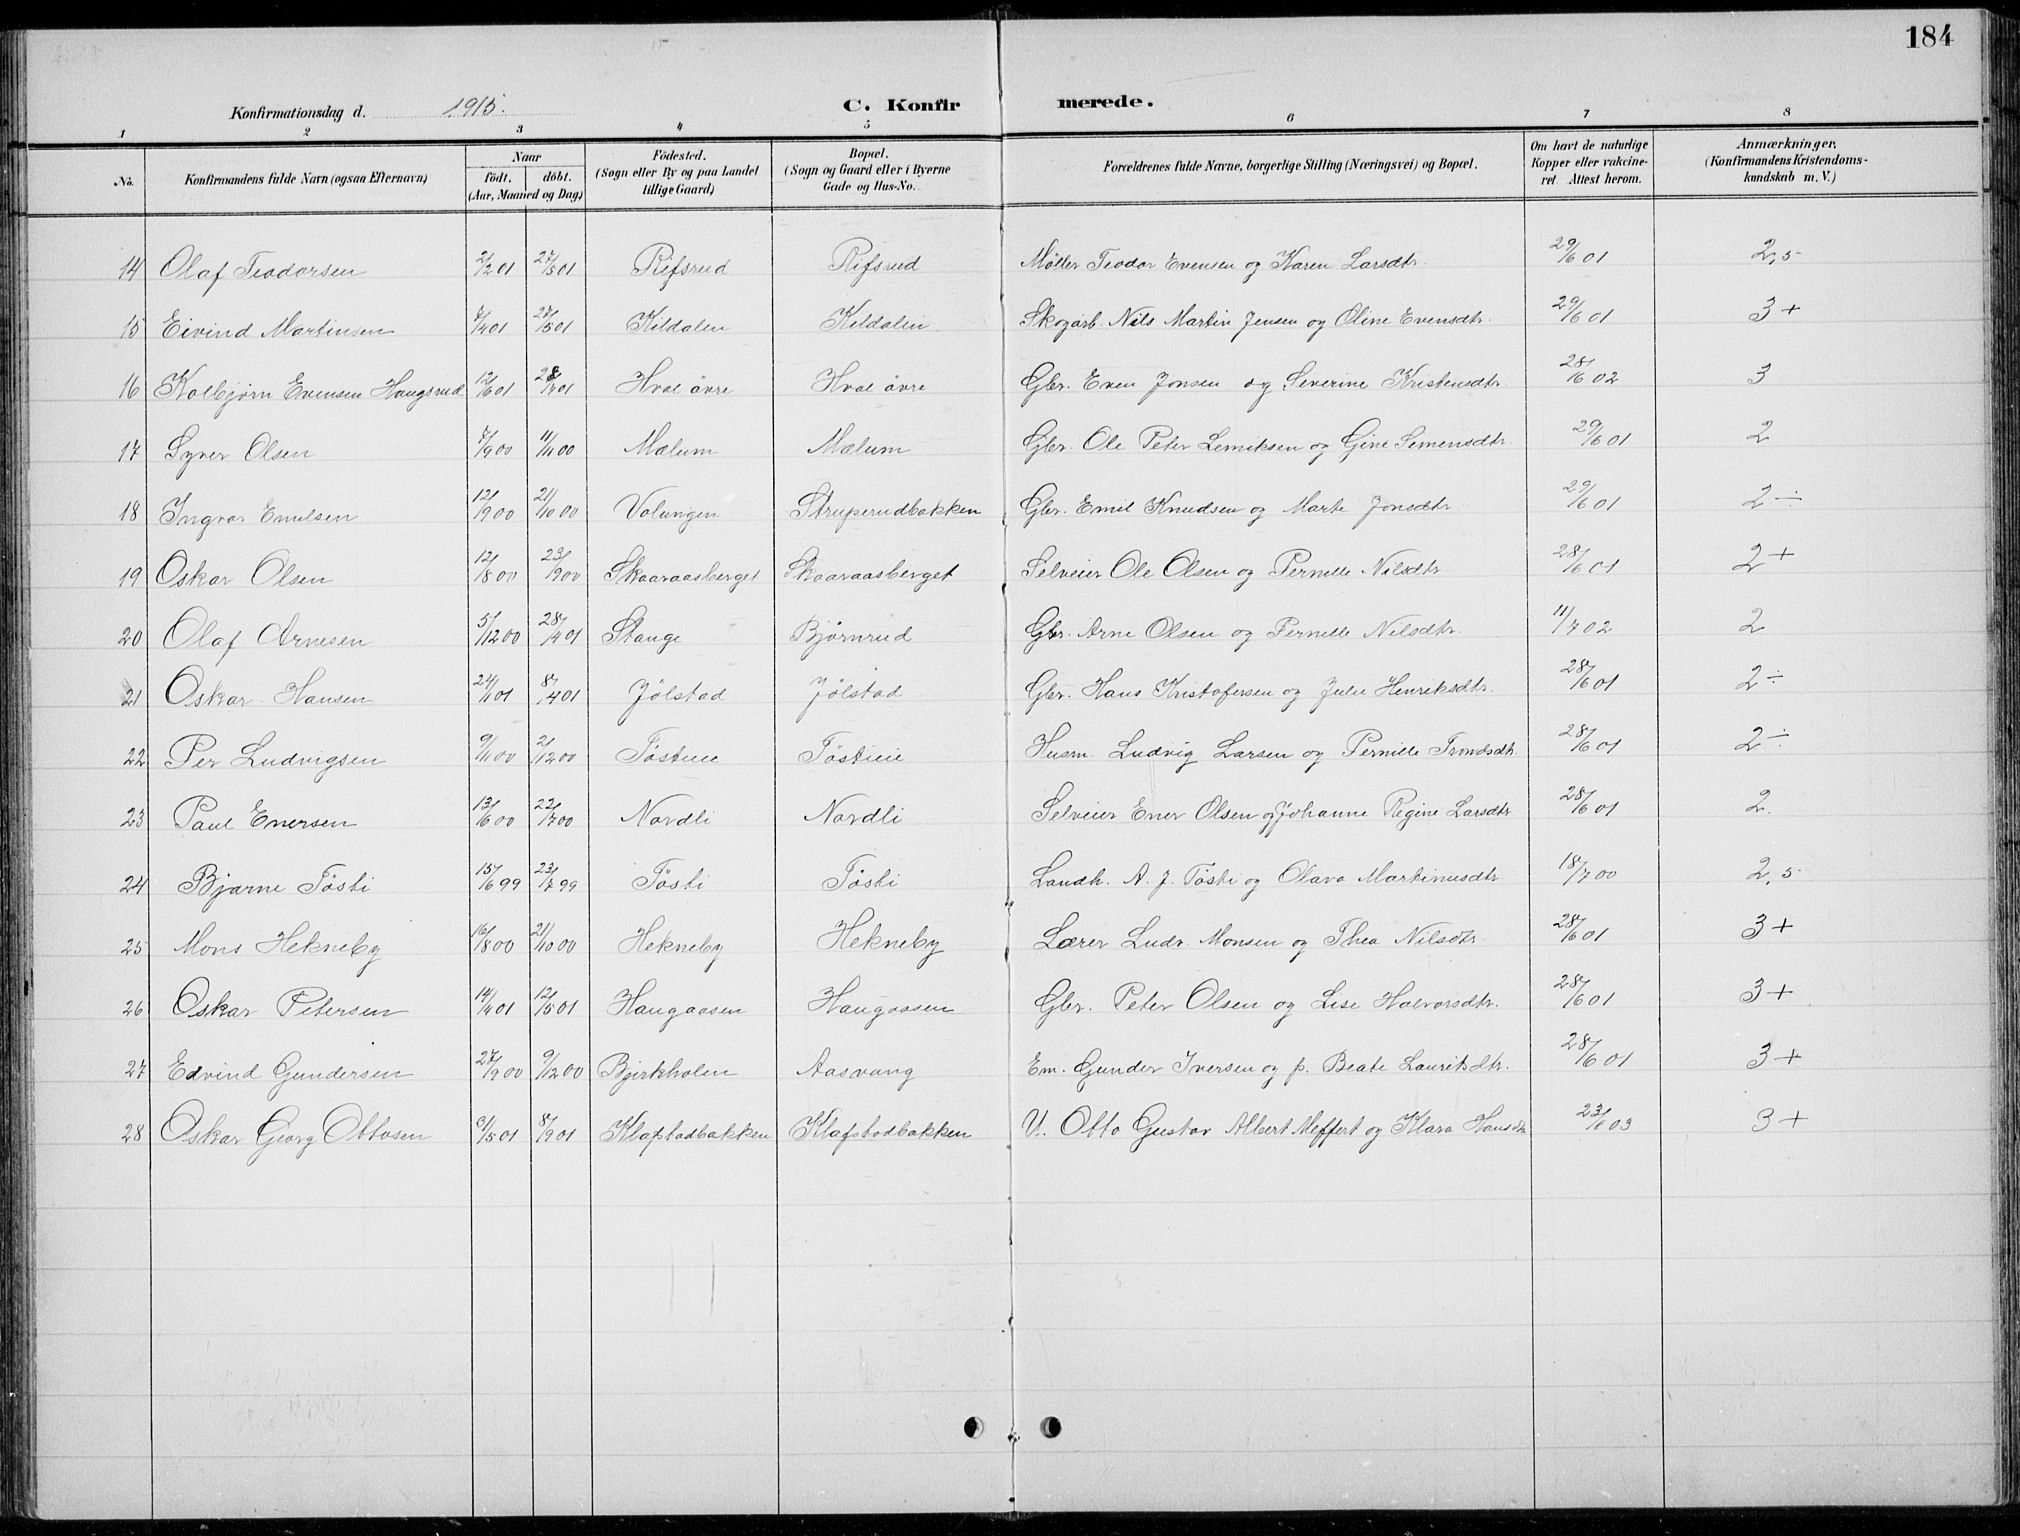 184
Konfirmationsdag d. 1915.
C. Konfirmerede.
1 2 3 4 5 6 7 8
No. Konfirmandens fulde Navn (ogsaa Efternavn) Naar födt. döbt. (Aar, Maaned og Dag) Födested. (Sogn eller By og paa Landet tillige Gaard) Bopæl. (Sogn og Gaard eller i Byerne Gade og Hus-No. Forældrenes fulde Navne, borgerlige Stilling (Næringsvei) og Bopæl. Om havt de naturlige Kopper eller vakcineret. Attest herom. Anmærkninger. (Konfirmandens Kristendomskundskab m. V.)
14 Olaf Teodorsen 2/2 01 27/5 01 Rifsrud Rifsrud Møller Teodor Evensen og Karen Larsdtr. 29/6 01 2,5
15 Eivind Martinsen 7/4 01 27/5 01 Kildalen Kildalen Skogarb. Nils Martin Jensen og Oline Evensdtr. 29/6 01 3+
16 Kolbjørn Evensen Haugsrud 12/6 01 28/7 01 Hval övre Hval övre Gbr. Even Jonsen og Severine Kristensdtr 28/6 02 3
17 Syver Olsen 7/9 00 11/11 00 Mælum Mælum Gbr. Ole Peter Lemiksen og Gine Simensdtr. 29/6 01 2
18 Ingvar Emilsen 12/9 00 21/10 00 Volungen Struperudbakken Gbr. Emil Knudsen og Marte Jonsdtr 29/6 01 2÷
19 Oskar Olsen 12/8 00 23/9 00 Skaaraasberget Skaaraasberget Selveier Ole Olsen og Pernille Nilsdtr 28/6 01 2+
20 Olaf Arnesen 5/12 00 28/4 01 Stange Bjørnrud Gbr. Arne Olsen og Pernille Nilsdtr. 11/7 02 2
21 Oskar Hansen 24/1 01 8/4 01 Jölstad Jölstad Gbr. Hans Kristofersen og Julie Henriksdtr. 28/6 01 2÷
22 Per Ludvigsen 9/11 00 2/12 00 Töstieie Töstieie Husm. Ludvig Larsen og Pernille Trondsdtr. 28/6 01 2÷
23 Paul Enersen 13/6 00 22/7 00 Nordli Nordli Selveier Ener Olsen og Johanne Regine Larsdtr 28/6 01 2.
24 Bjarne Tösti 15/6 99 23/7 99 Tösti Tösti Landh. A. J. Tösti og Olava Martinusdtr 18/7 00 2,5
25 Mons Hekneby 16/8 00 21/10 00 Hekneby Hekneby Lærer Ludv. Monsen og Thea Nilsdtr 28/6 01 3+
26 Oskar Petersen 14/4 01 12/5 01 Haugaasen Haugaasen Gbr. Peter Olsen og Lise Halvorsdtr. 28/6 01 3+
27 Edvind Gundersen 27/9 00 9/12 00 Bjirkholen Aasvang Em. Gunder Iversen og p. Beate Lauritsdtr. 28/6 01 3+
28 Oskar Georg Ottosen 31/5 01 8/9 01 Klafstadbakken Klafstadbakken U. Otto Gustav Albert Meffert og Klara Hansdtr 23/6 03 3+